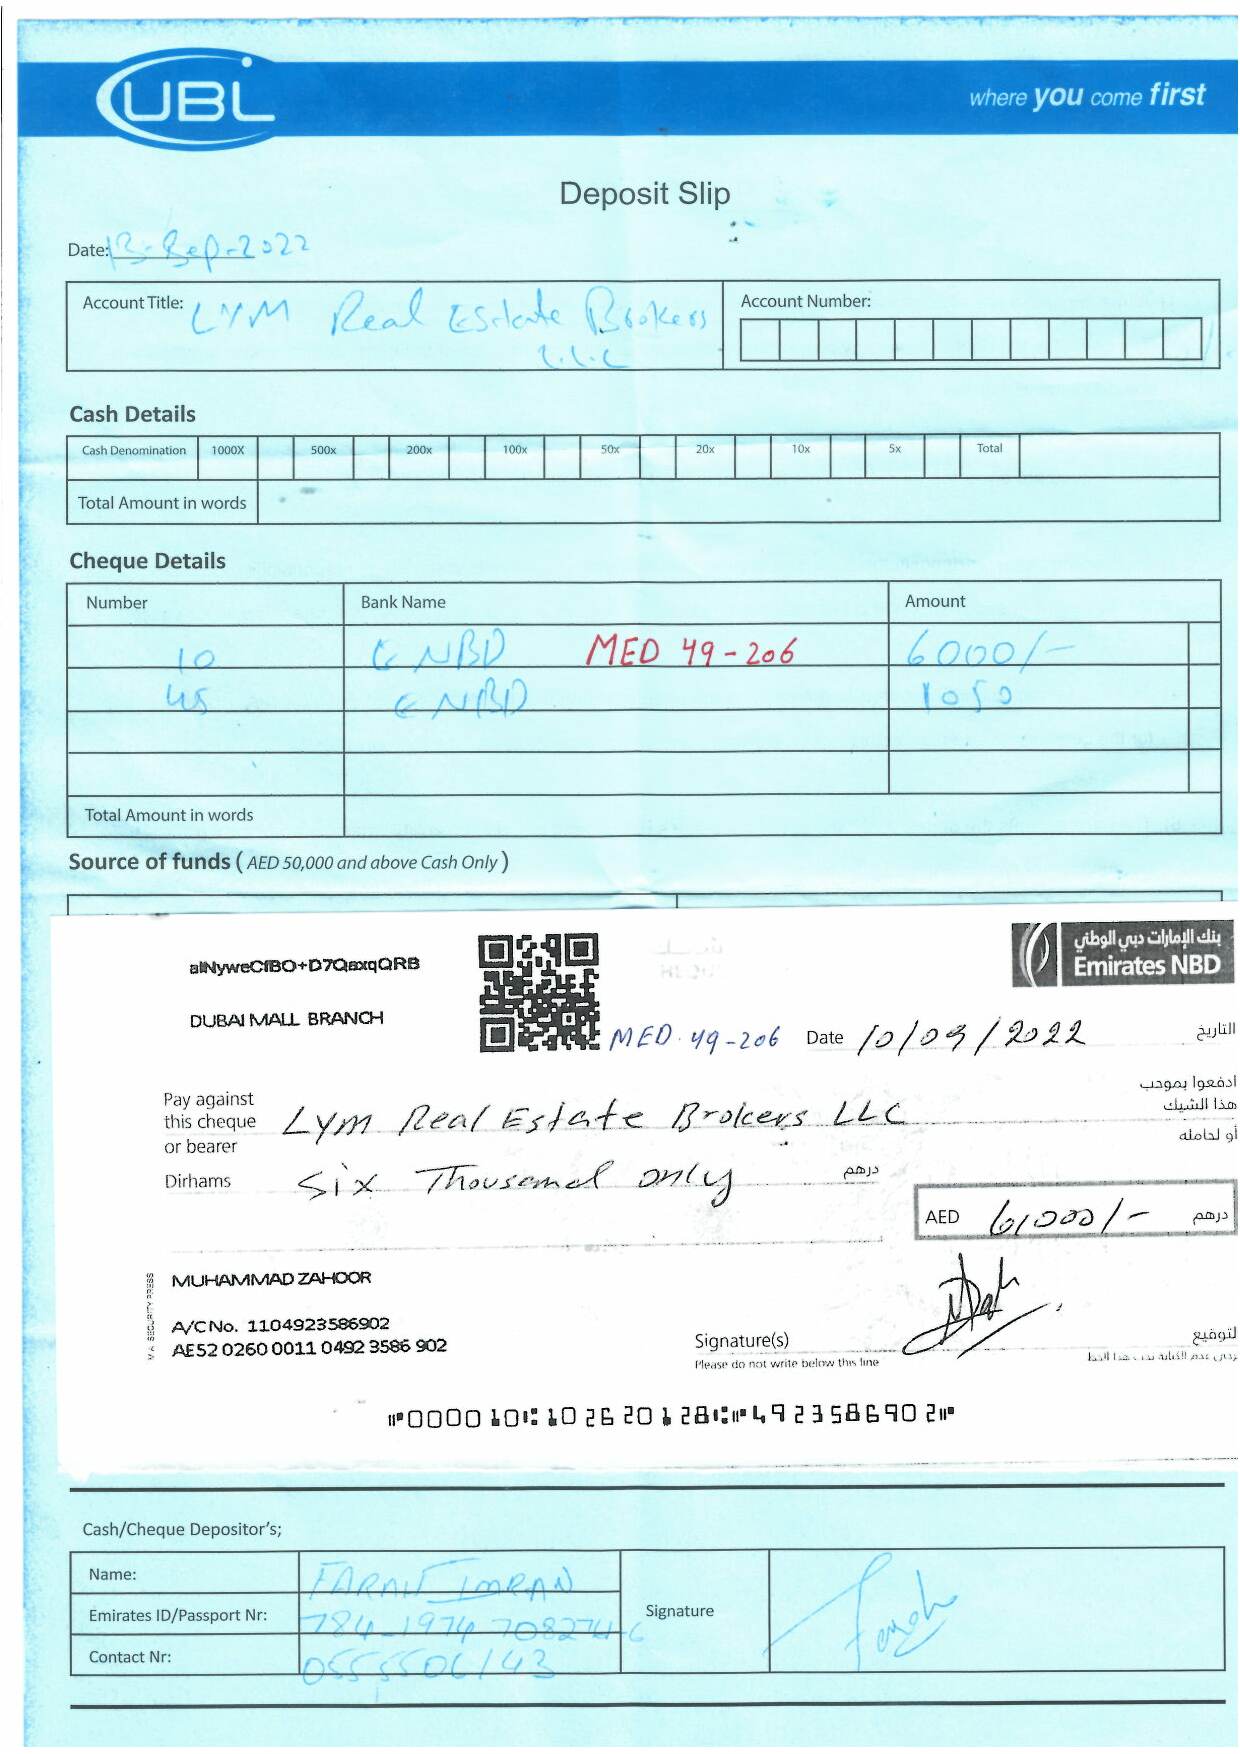 UBL
where you come first
Deposit Slip
Date: 13-Sep-2022
Account Title: LYM Real Estate Brokers
L.L.C
Account Number:
Cash Details
Cash Denomination 1000X 500x 200x 100x 50x 20x 10x 5x Total
Total Amount in words
Cheque Details
Number Bank Name Amount
10 ENBD MED 49-206 6000/-
45 ENBD 1050
Total Amount in words
Source of funds ( AED 50,000 and above Cash Only )
بنك الإمارات دبي الوطني
Emirates NBD
DUBAI MALL BRANCH
MED 49-206 Date 10/09/2022 التاريخ
Pay against this cheque or bearer Lym Real Estate Brokers LLC ادفعوا بموجب هذا الشيك أو لحامله
Dirhams Six Thousand only درهم
AED 6,000/- درهم
MUHAMMAD ZAHOOR
A/C No. 1104923586902
AE52 0260 0011 0492 3586 902
Signature(s)
Please do not write below this line
⑈000010⑆102620128⑆⑈4923586902⑈
Cash/Cheque Depositor's;
Name: FARAH IMRAN
Emirates ID/Passport Nr: 784-1974-708274-6
Contact Nr:
Signature